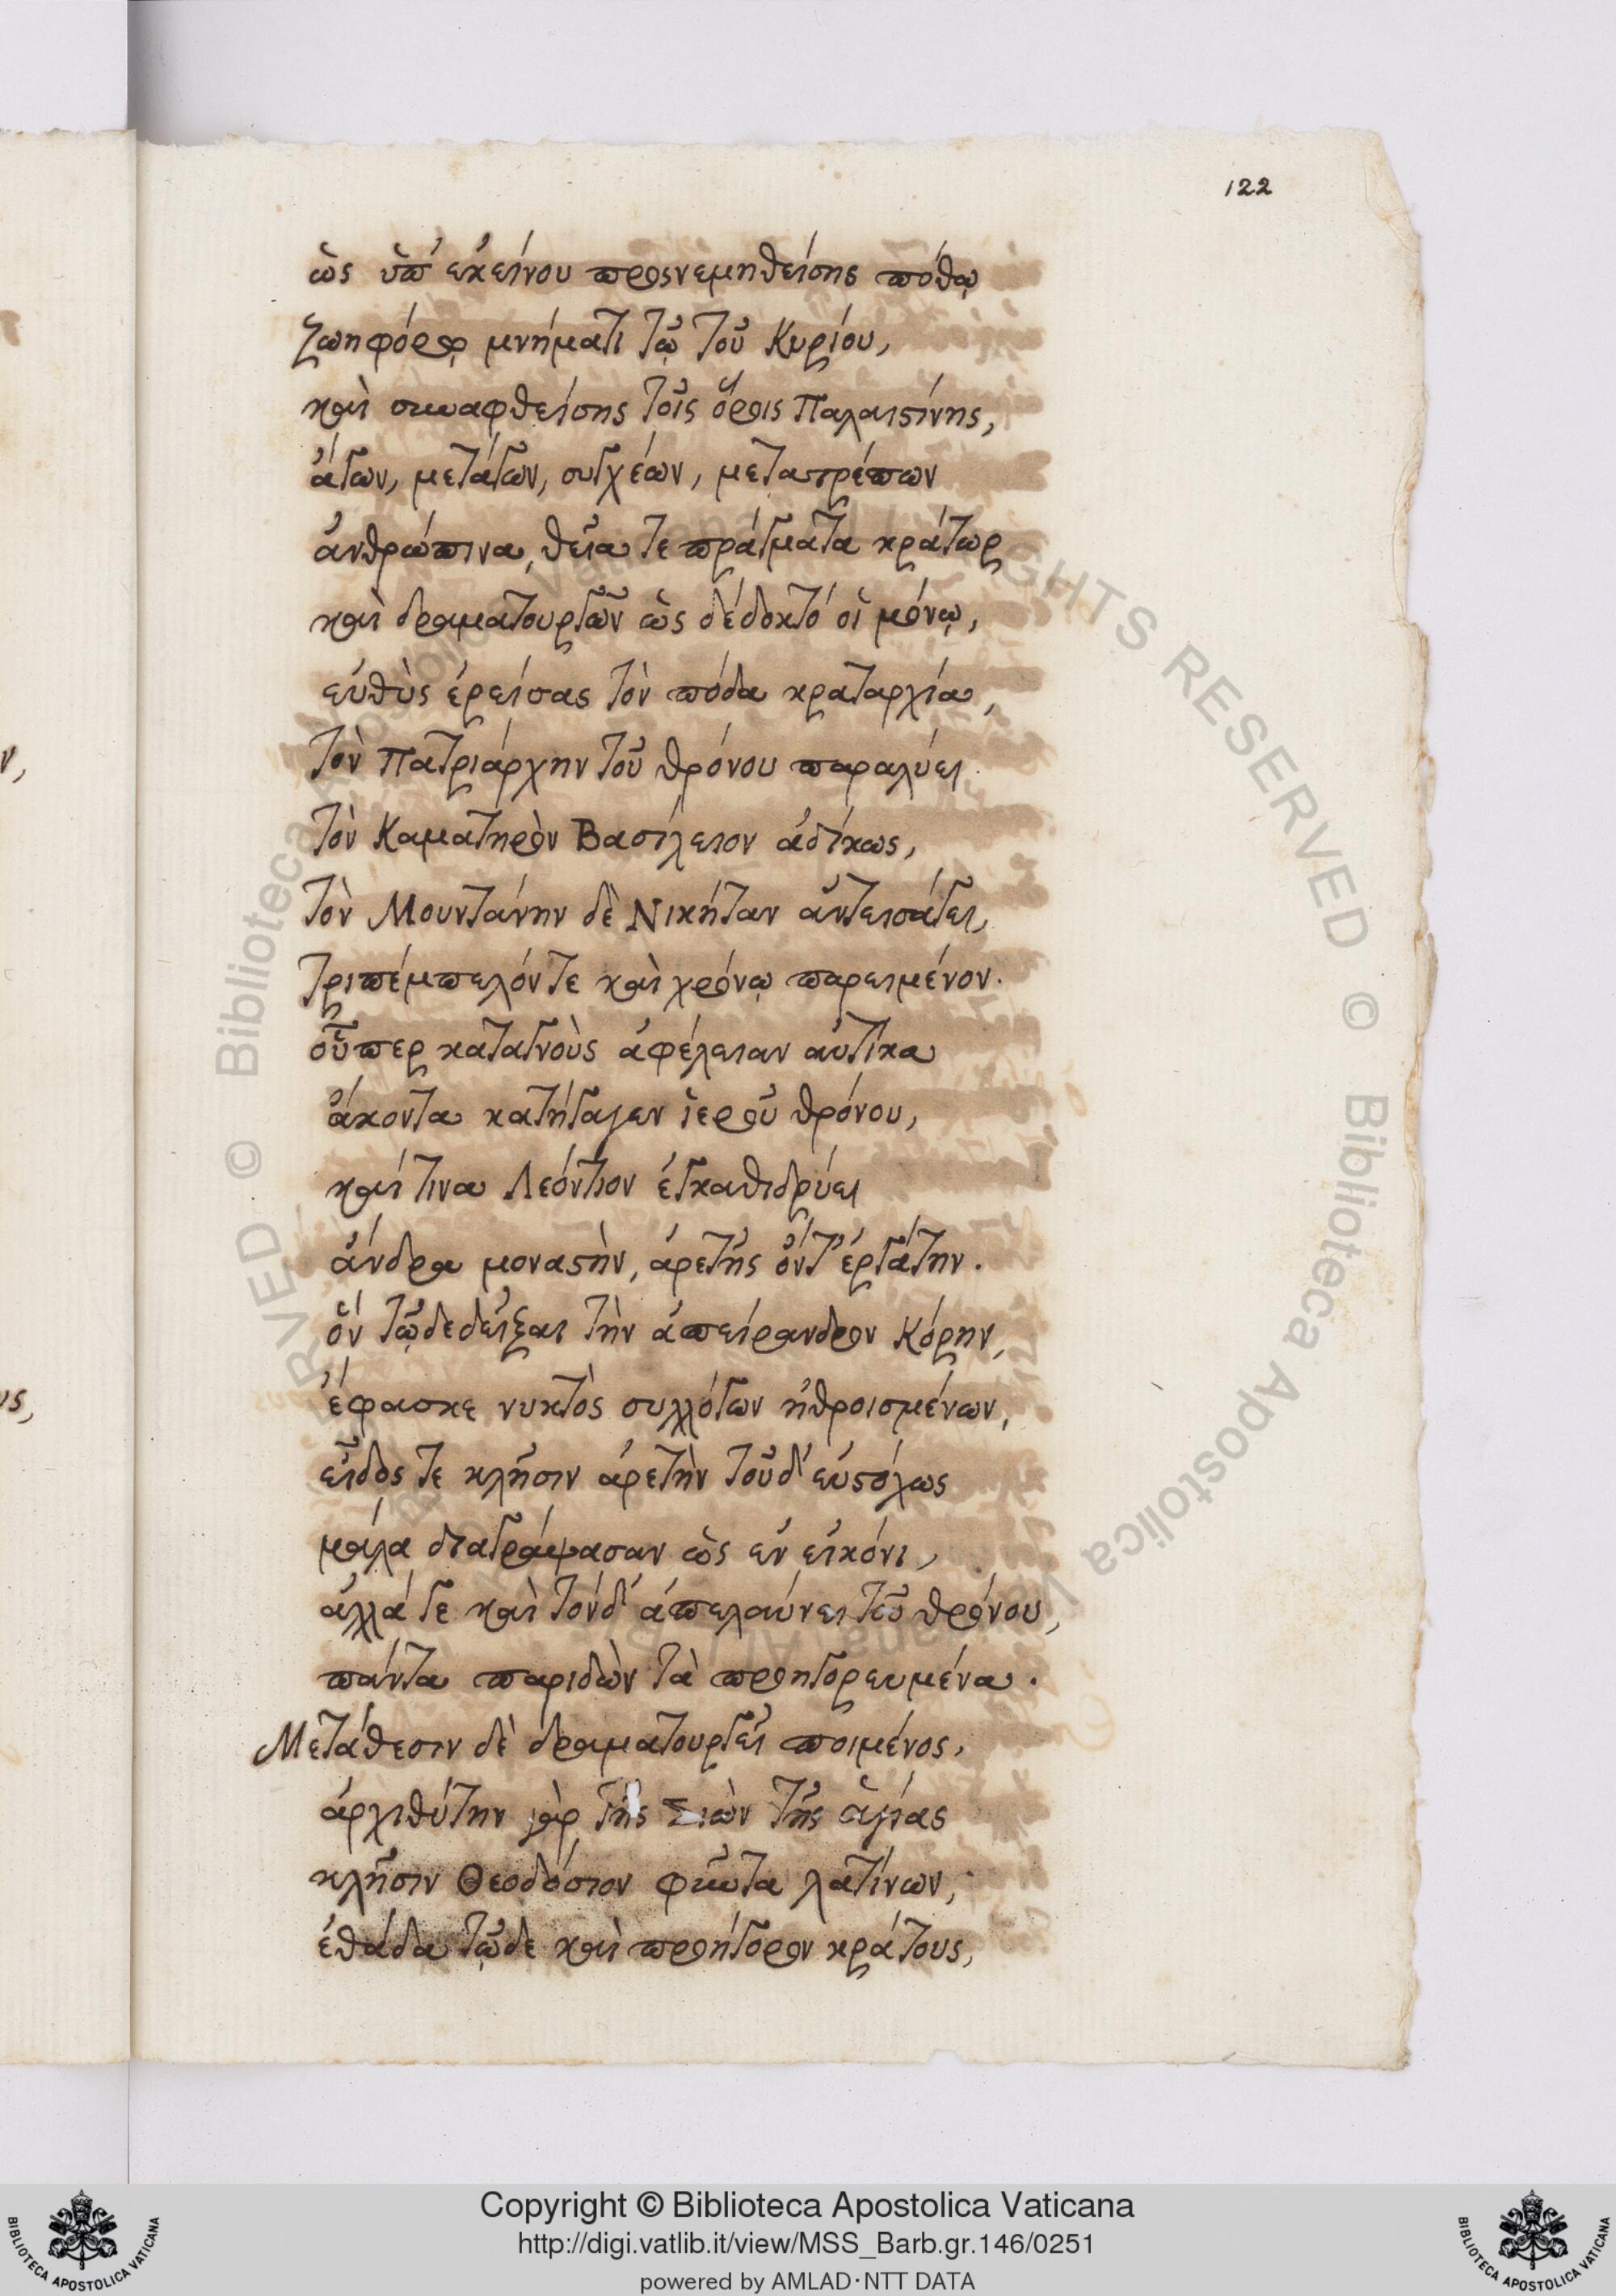 122
ὡς ὑπ' ἐκείνου προςνεμηθείσης πόθῳ
ζωηφόρῳ μνήματι τῷ τοῦ Κυρίου,
καὶ συναφθείσης τοῖς ὅροις Παλαιστίνης,
ἄγων, μετάγων, συγχέων, μεταστρέπων
ἀνθρώπινα, θεῖα τε πράγματα κράτωρ
καὶ δραματουργῶν ὡς δέδοκτό οἱ μόνῳ,
εὐθὺς ἐρείσας τὸν πόδα κραταρχία,
τὸν Πατριάρχην τοῦ θρόνου παραλύει
τὸν Καματηρὸν Βασίλειον ἀδίκως,
τὸν Μουντάνην δὲ Νικήταν ἀντεισάγει,
τριπέμπελόν τε καὶ χρόνῳ παρειμένον.
οὗπερ καταγνοὺς ἀφέλειαν αὐτίκα
ἄκοντα κατήγαγεν ἱεροῦ θρόνου,
καί τινα Λεόντιον ἐγκαθιδρύει
ἄνδρα μοναστὴν, ἀρετῆς ὄντ' ἐργάτην.
ὃν τῷδε δεῖξαι τὴν ἀπείρανδρον Κόρην,
ἔφασκε νυκτὸς συλλόγων ἠθροισμένων,
εἶδος τε κλῆσιν ἀρετὴν τοῦδ' εὐστόχως
μάλα διαγράψασαν ὡς ἐν εἰκόνι,
ἀλλά γε καὶ τόνδ' ἀπελαύνει τοῦ θρόνου,
πάντα παριδὼν τὰ προηγορευμένα.
Μετάθεσιν δὲ δραματουργεῖ ποιμένος,
ἀρχιθύτην γὰρ τῆς Σιὼν τῆς ἁγίας
κλῆσιν Θεοδόσιον φῶτα λατίνων,
ἐθάδα τῷδε καὶ προήγορον κράτους,
Copyright © Biblioteca Apostolica Vaticana
http://digi.vatlib.it/view/MSS_Barb.gr.146/0251
powered by AMLAD·NTT DATA
BIBLIOTECA APOSTOLICA VATICANA
BIBLIOTECA APOSTOLICA VATICANA